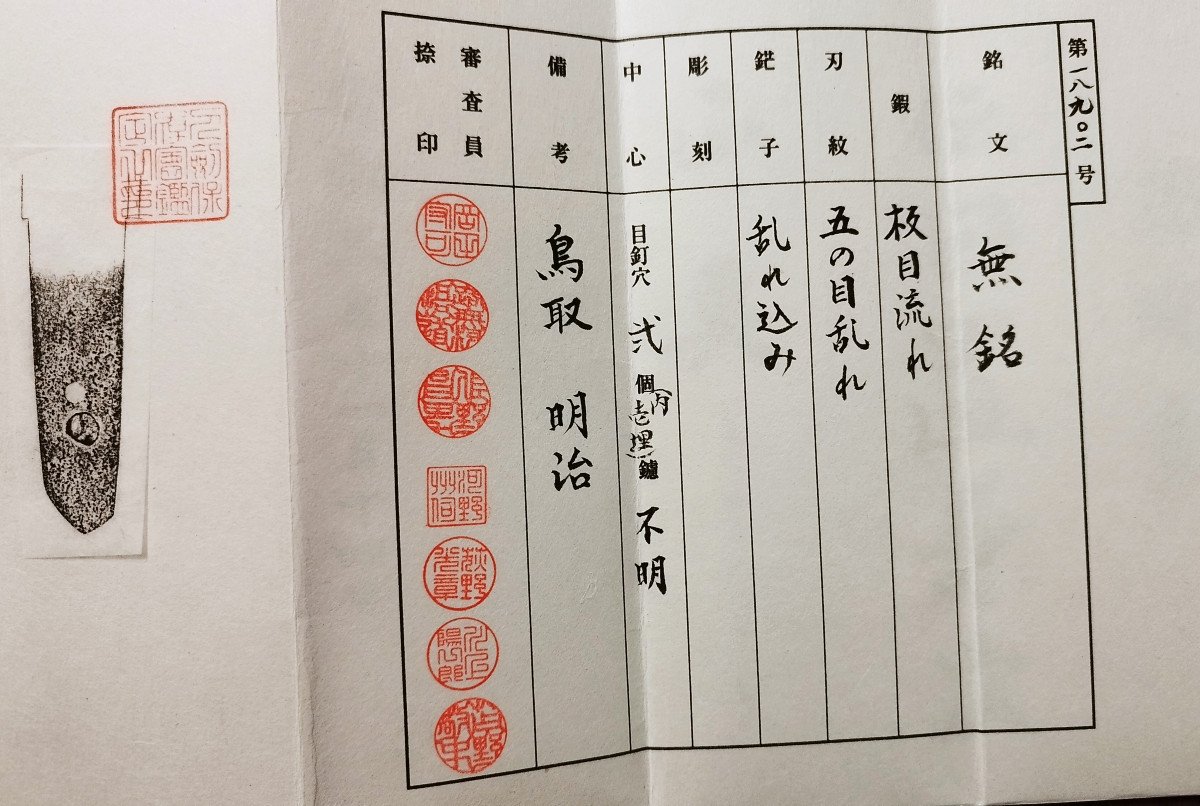 第一八九〇二号
銘文
無銘
鍜
板目流れ
刃紋
五の目乱れ
鋩子
乱れ込み
彫刻
中心
目釘穴 弐 個(内壱埋)鑢 不明
備考
鳥取 明治
審査員
捺印
河野
荻野